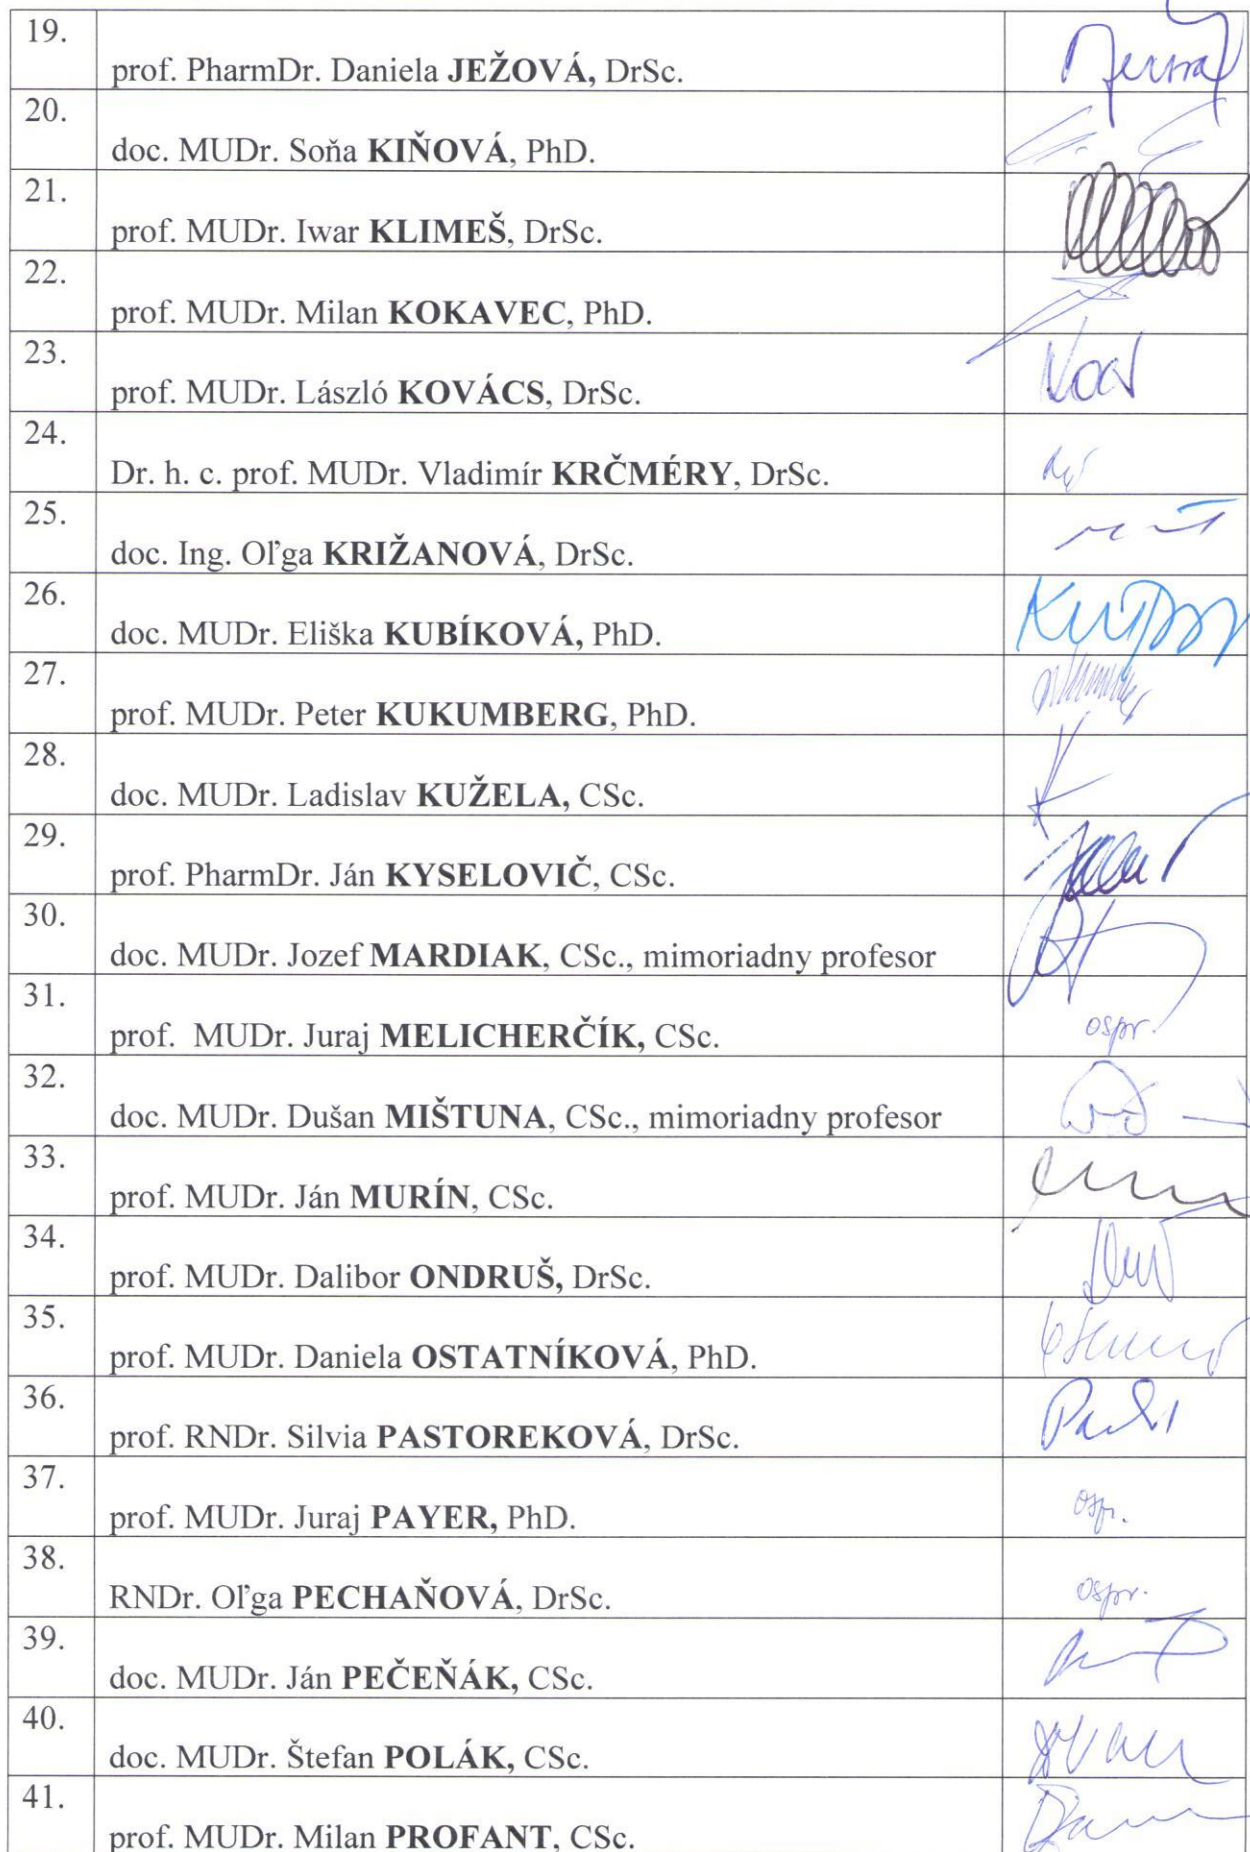 19.
prof. PharmDr. Daniela JEŽOVÁ, DrSc.
20.
doc. MUDr. Soňa KIŇOVÁ, PhD.
21.
prof. MUDr. Iwar KLIMEŠ, DrSc.
22.
prof. MUDr. Milan KOKAVEC, PhD.
23.
prof. MUDr. László KOVÁCS, DrSc.
24.
Dr. h. c. prof. MUDr. Vladimír KRČMÉRY, DrSc.
25.
doc. Ing. Oľga KRIŽANOVÁ, DrSc.
26.
doc. MUDr. Eliška KUBÍKOVÁ, PhD.
27.
prof. MUDr. Peter KUKUMBERG, PhD.
28.
doc. MUDr. Ladislav KUŽELA, CSc.
29.
prof. PharmDr. Ján KYSELOVIČ, CSc.
30.
doc. MUDr. Jozef MARDIAK, CSc., mimoriadny profesor
31.
prof. MUDr. Juraj MELICHERČÍK, CSc. ospr.
32.
doc. MUDr. Dušan MIŠTUNA, CSc., mimoriadny profesor
33.
prof. MUDr. Ján MURÍN, CSc.
34.
prof. MUDr. Dalibor ONDRUŠ, DrSc.
35.
prof. MUDr. Daniela OSTATNÍKOVÁ, PhD.
36.
prof. RNDr. Silvia PASTOREKOVÁ, DrSc.
37.
prof. MUDr. Juraj PAYER, PhD. ospr.
38.
RNDr. Oľga PECHAŇOVÁ, DrSc. ospr.
39.
doc. MUDr. Ján PEČEŇÁK, CSc.
40.
doc. MUDr. Štefan POLÁK, CSc.
41.
prof. MUDr. Milan PROFANT, CSc.